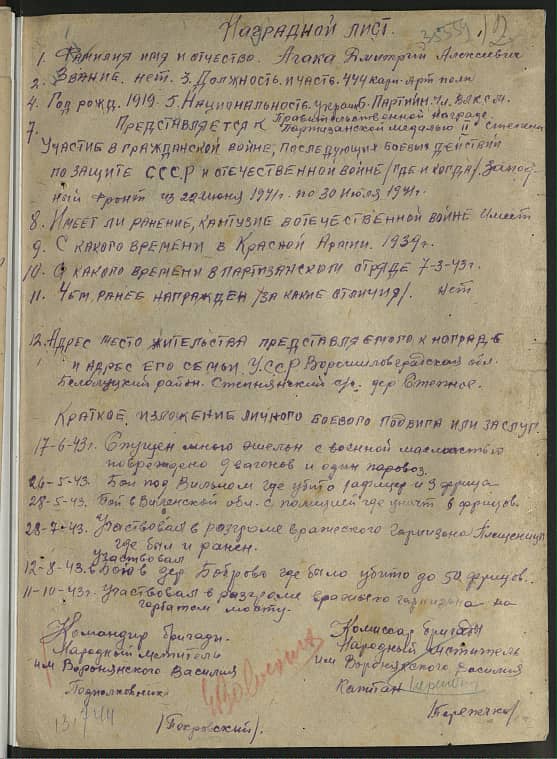 35559 12
Наградной лист.
1. Фамилия имя и отчество. Агака Дмитрий Алексеевич
2. Звание. нет. 3. Должность и часть. 444 карп. Арт полк
4. Год рожд. 1919. 5. Национальность. украин. 6. Партийн. Чл. ВЛКСМ.
7. Представляется к Правительственной награде
Партизанской медалью II й степени
Участие в гражданской войне, последующих боевых действий
по защите СССР и отечественной войне /где и когда/. Запад-
ный фронт из 22 июня 1941 г. по 30 июля 1941 г.
8. Имеет ли ранение, кантузие в отечественной войне Имеет
9. С какого времени в Красной Армии. 1939 г.
10. С какого времени в партизанском отряде 7-3-43 г.
11. Чем ранее награжден /за какие отличия/. нет.
12. Адрес место жительства представляемого к наград-е
и адрес его семьи. УССР Ворошиловградская обл.
Белолуцкий район. Степнянский с/с. дер Степное.
Краткое изложение личного боевого подвига или заслуг.
17-6-43 г. Спущен много эшелон с военной
повреждено 9 вагонов и один паровоз.
26-5-43. Бой под Вильном где убито 1 офицер и 3 фрица
28-5-43. Бой в Виленской обл. с полицией где уничт 8 фрицов.
28-7-43. Участвовал в разгроме вражеского гарнизона Плещеницы
где был и ранен.
участвовал
12-8-43. в бою в дер Боброво где было убито до 50 фрицов.
11-10-43 г. Участвовал в разгроме вражьего гарнизона на
горбатом мосту.
Командир бригады
Народный Мститель
им Воронянского Василия
Подполковник
/Покровский/.
13.7.44
Комиссар бригады
Народный Мститель
им Воронянского Василия
Капитан